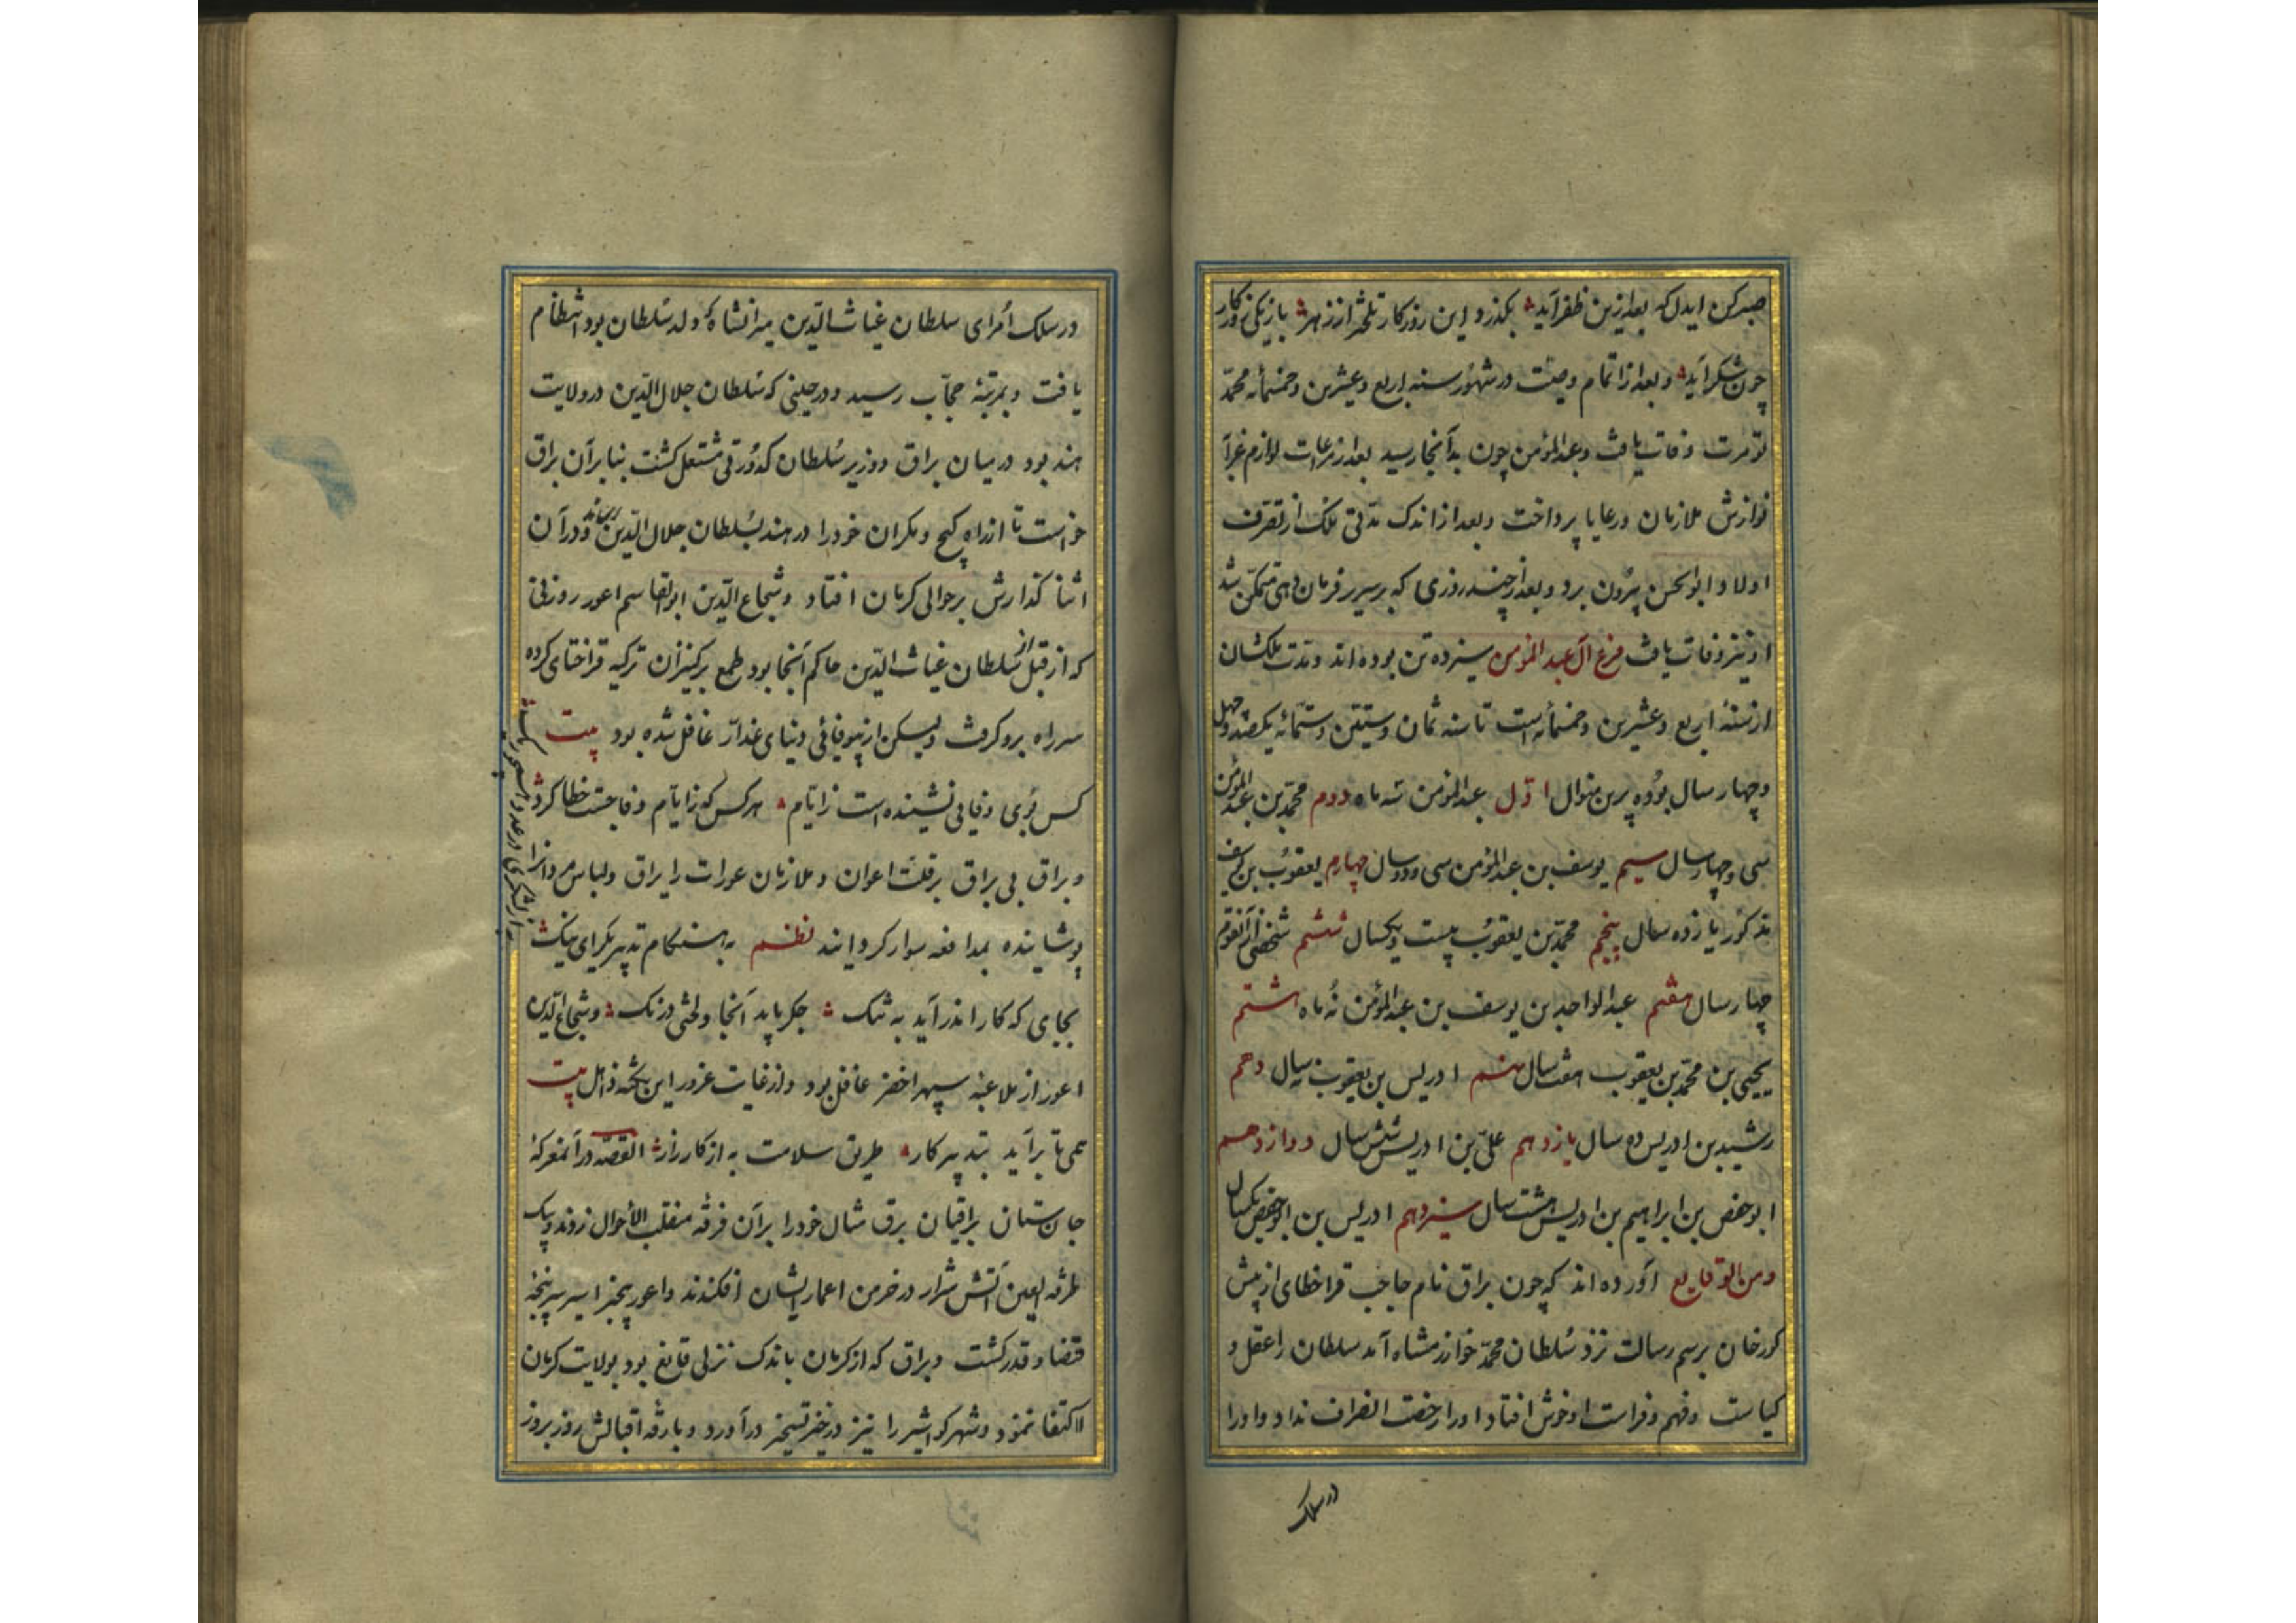 صبر کن ایدل که بعد ازین ظفر آید بگذرد این روزگار تلختر از زهر بار یکی روزگار
چون شکر آید و بعد از اتمام وصیت در شهور سنه اربع و عشرین و خمسمائه محمد
تومرت وفات یافت و عبدالمؤمن چون بدانجا رسید بعد از مراعات لوازم عزا
نوازش ملازمان و رعایا پرداخت و بعد از اندک مدتی ملک از تصرف
اولاد ابوالحسن بیرون برد و بعد از چند روزی که بر سریر فرمان دهی متمکن شد
او نیز وفات یافت فرع آل عبد المؤمن سیزده تن بوده اند و مدت ملکشان
از سنهٔ اربع و عشرین و خمسمائه است تا سنه ثمان و ستین و ستمائه یکصد و چهل
و چهار سال بوده برین منوال اول عبدالمؤمن سه ماه دوم محمد بن عبد المؤمن
سی و چهار سال سیم یوسف بن عبدالمؤمن سی و دو سال چهارم یعقوب بن یوسف
مذکور یازده سال پنجم محمد بن یعقوب بیست و یکسال ششم شخصی از آنقوم
چهار سال هفتم عبدالواحد بن یوسف بن عبدالمؤمن نه ماه هشتم
یحیی بن محمد بن یعقوب هفت سال نهم ادریس بن یعقوب سال دهم
رشید بن ادریس ده سال یازدهم علی بن ادریس شش سال دوازدهم
ابوحفص بن ابراهیم بن ادریس هشت سال سیزدهم ادریس بن ابوحفص یکسال
ومن الوقایع آورده اند که چون براق نام حاجب قراخطای از پیش
کورخان برسم رسالت نزد سلطان محمد خوارزمشاه آمد سلطان را عقل و
کیاست و فهم و فراست او خوش افتاد او را رخصت انصراف نداد و او را
در سلک
در سلک امرای سلطان غیاث الدین میرانشاه که ولد سلطان بود انتظام
یافت و بمرتبهٔ حجاب رسید و در حینی که سلطان جلال الدین در ولایت
هند بود در میان براق و وزیر سلطان کدورتی مشتعل کشت بنا بر آن براق
خواست تا از راه کیج و مکران خود را در هند بسلطان جلال الدین رساند و در آن
اثنا گذارش بر حوالی کرمان افتاد و شجاع الدین ابوالقاسم اعور روزنی
که از قبل سلطان غیاث الدین حاکم آنجا بود طمع بر کنیزان ترکیه قراختای کرده
سر راه برو گرفت و لیکن از بیوفائی دنیای غدار غافل شده بود بیت
کس بوی وفایی نشنیده است ز ایام هر کس که ز ایام وفا جست خطا کرد
و براق بی براق بر قلت اعوان و ملازمان عورات را یراق و لباس مردانرا
پوشانیده بمدافعه سوار کردانند نظم به هنگام تدبیر یکرای نیک
به از لشکری در عدد
بجایی که کار اندر آید به تنک جگر باید آنجا و لختی درنک و شجاع الدین
اعور از ملاعبه سپهر اخضر غافل بود و از غایت غرور این نکته ذاهل بیت
همی تا برآید بتدبیر کار طریق سلامت به از کارزار القصه در آنمعرکهٔ
جان ستان براقیان برق مثال خود را بر آن فرقه منقلب الأحوال زدند و بیک
طرفه العین آتش شرار در خرمن اعمار ایشان افکندند و اعور بیخبر اسیر سرپنجهٔ
قضا و قدر کشت و براق که از کرمان باندک نزلی قانع بود بولایت کرمان
اکتفا ننمود و شهر کواشیر را نیز در حیز تسخیر درآورد و بارقه اقبالش روز بروز